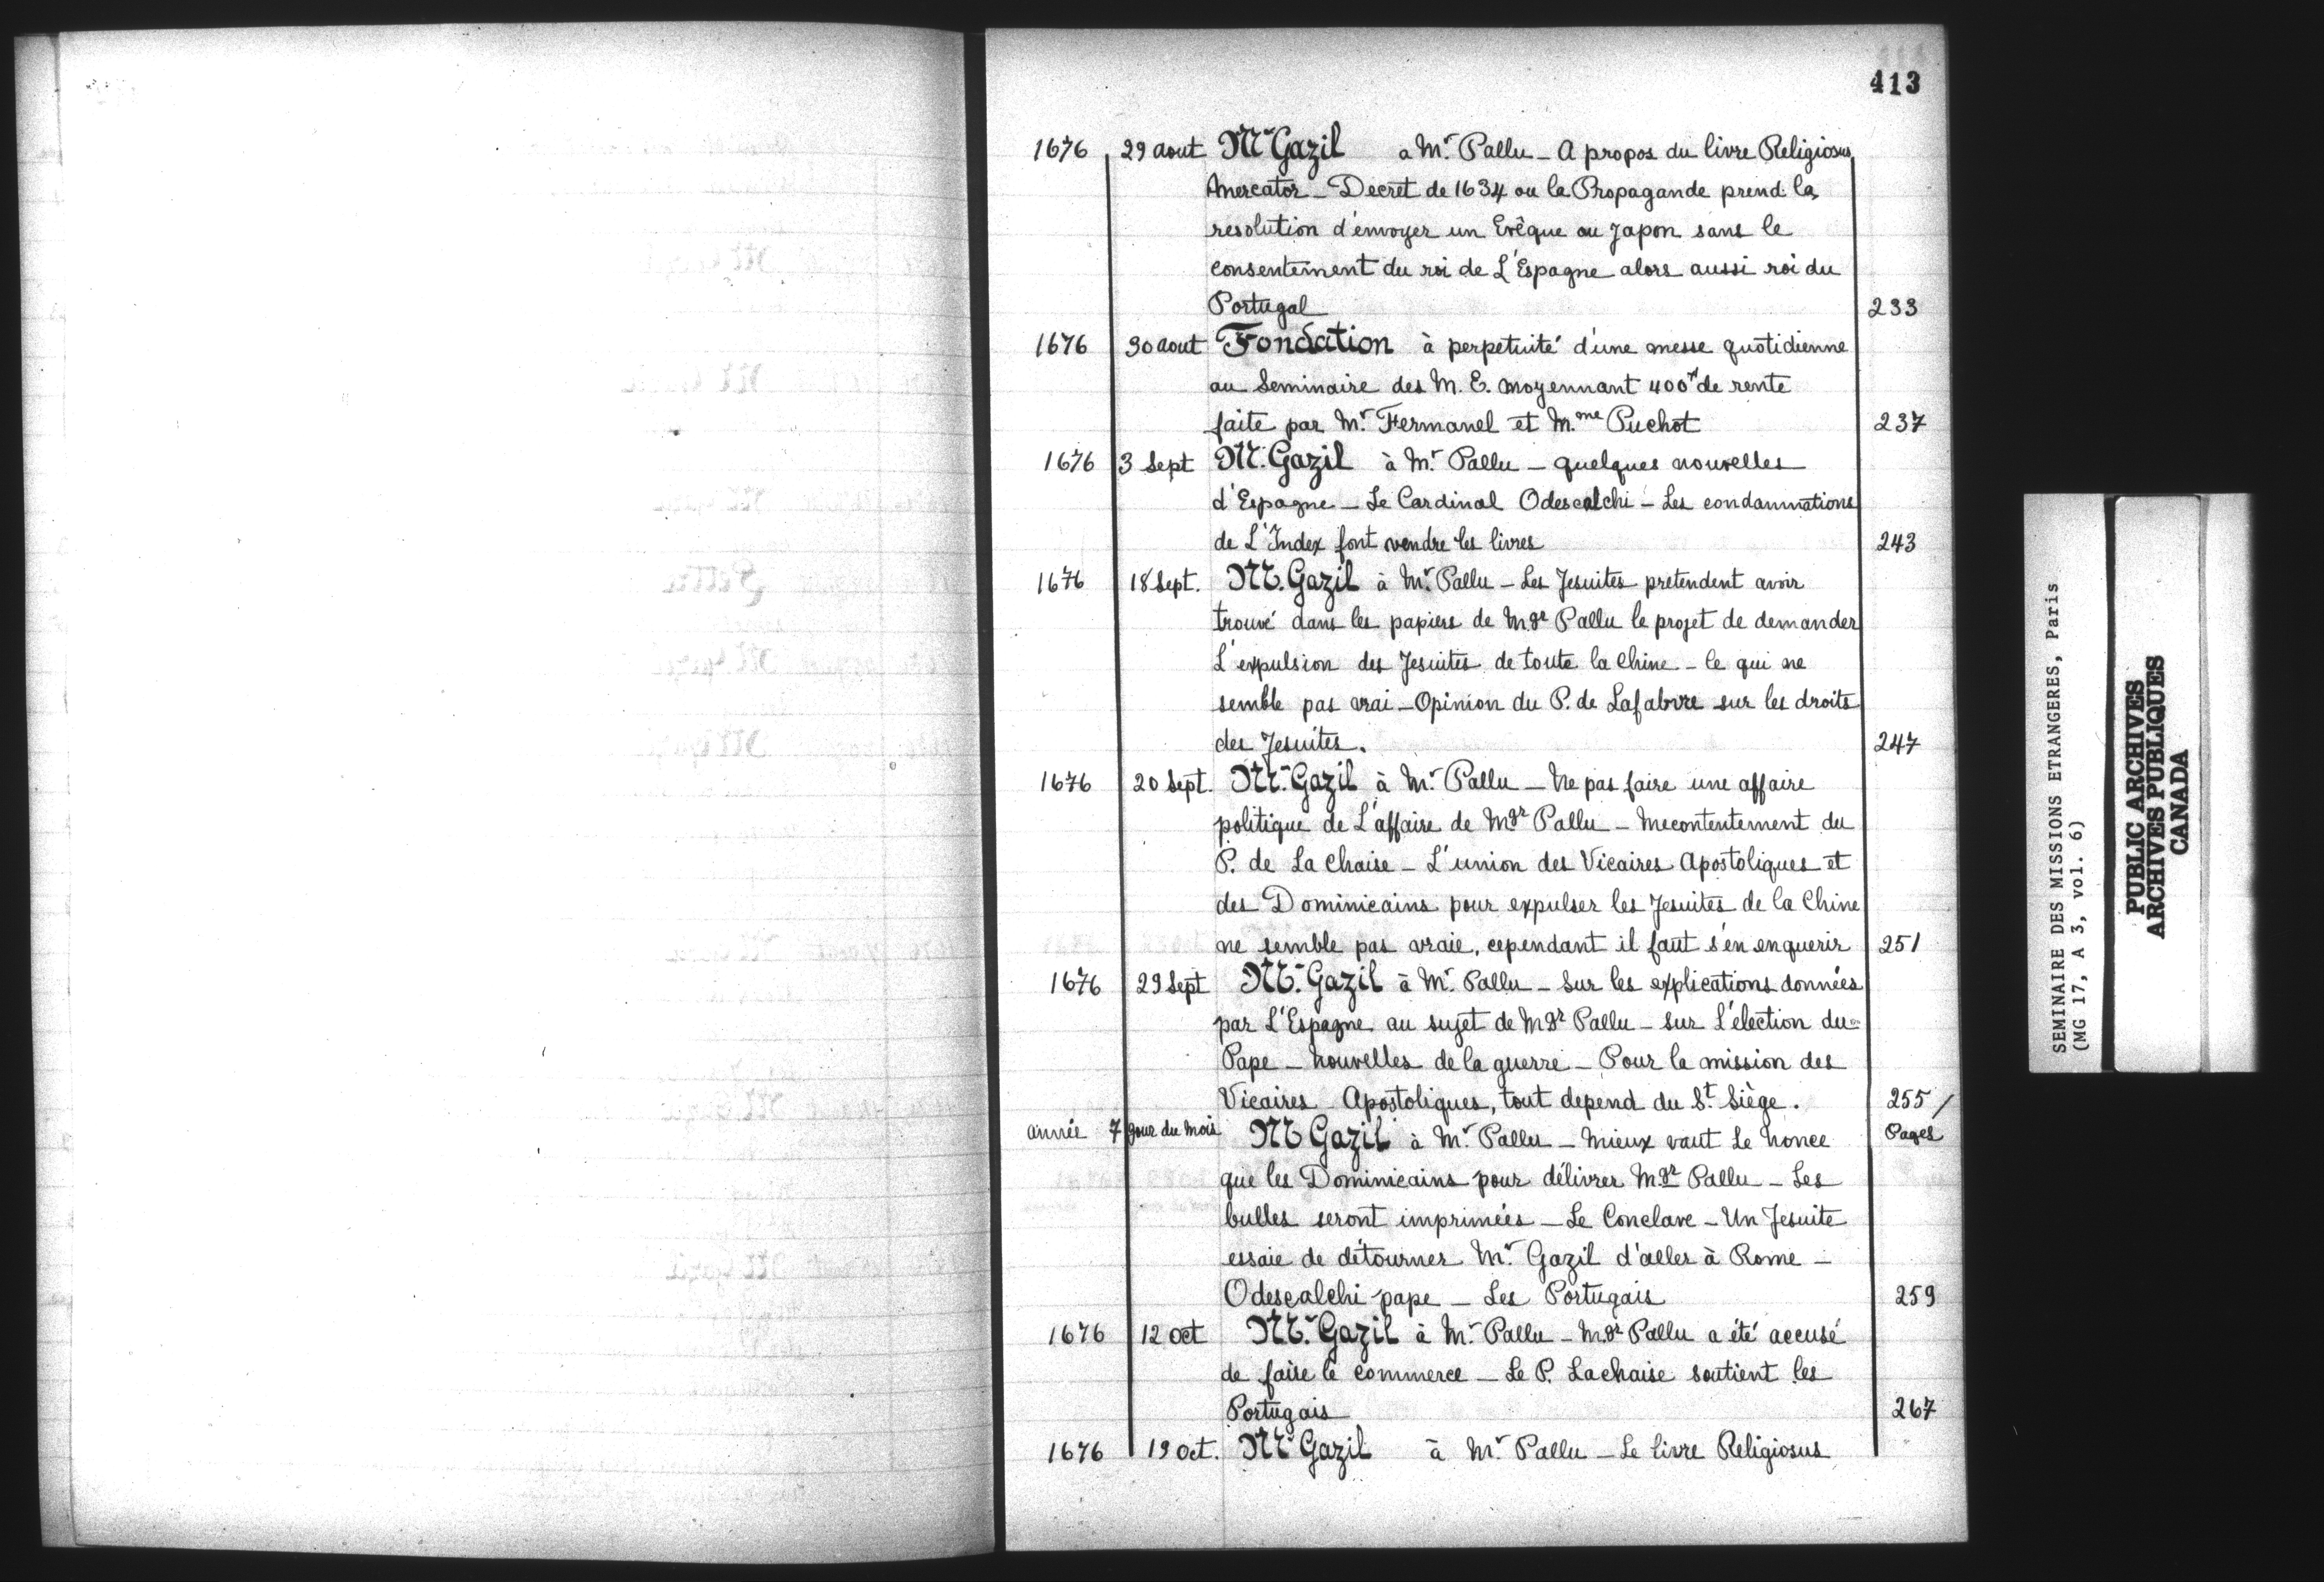 413
1676 29 aout Mr Gazil a Mr. Pallu - A propos du livre Religiosus
Mercator - Decret de 1634 ou la Propagande prend la
resolution d'envoyer un Evêque au Japon sans le
consentement du roi de L'Espagne alors aussi roi du
Portugal 233
1676 30 aout Fondation à perpetuité d'une messe quotidienne
au Seminaire des M. E. moyennant 400 de rente
faite par Mr. Fermanel et M.me Puchot 237
1676 3 Sept M. Gazil à Mr. Pallu - quelques nouvelles
d'Espagne - Le Cardinal Odescalchi - Les condamnations
de L'Index font vendre les livres 243
1676 18 Sept. M. Gazil à Mr. Pallu - Les Jesuites pretendent avoir
trouvé dans les papiers de Mgr Pallu le projet de demander
L'expulsion des Jesuites de toute la Chine - Ce qui ne
semble pas vrai - Opinion du P. de Lafabvre sur les droits
des Jesuites. 247
1676 20 Sept. Mr. Gazil à Mr. Pallu - Ne pas faire une affaire
politique de L'affaire de Mgr Pallu - Mecontentement du
P. de La Chaise - L'union des Vicaires Apostoliques et
des Dominicains pour expulser les Jesuites de la Chine
ne semble pas vraie, cependant il faut s'en enquerir 251
1676 29 Sept Mr. Gazil à Mr. Pallu - Sur les explications données
par L'Espagne au sujet de Mgr Pallu - Sur L'élection du
Pape - Nouvelles de la guerre - Pour la mission des
Vicaires Apostoliques, tout depend du St. Siège. 255 /
année 7 jour du mois M Gazil à Mr Pallu - Mieux vaut Le Nonce Pages
que les Dominicains pour délivrer Mgr Pallu - Les
bulles seront imprimées - Le Conclave - Un Jesuite
essaie de détourner Mr. Gazil d'aller à Rome -
Odescalchi pape - Les Portugais 259
1676 12 Oct Mr. Gazil à Mr. Pallu - Mgr Pallu a été accusé
de faire le commerce - Le P. Lachaise soutient les
Portugais 267
1676 19 Oct. Mr Gazil à Mr. Pallu - Le livre Religiosus
SEMINAIRE DES MISSIONS ETRANGERES, Paris
(MG 17, A 3, vol. 6)
PUBLIC ARCHIVES
ARCHIVES PUBLIQUES
CANADA